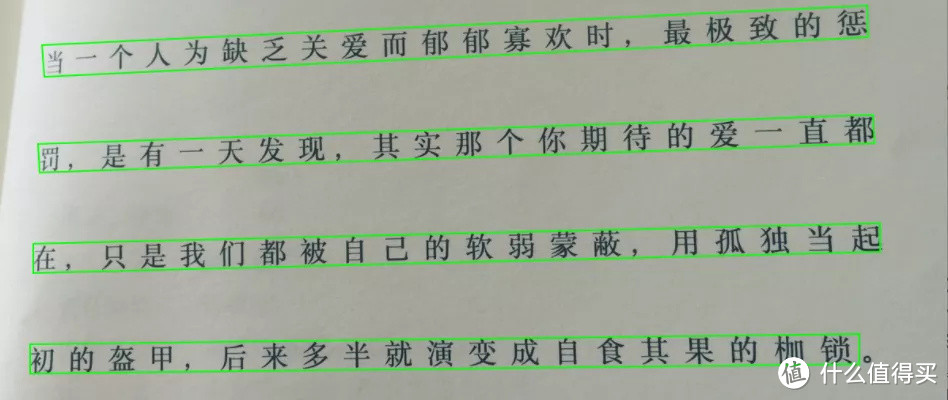 当一个人为缺乏关爱而郁郁寡欢时，最极致的惩
罚，是有一天发现，其实那个你期待的爱一直都
在，只是我们都被自己的软弱蒙蔽，用孤独当起
初的盔甲，后来多半就演变成自食其果的枷锁。
值 什么值得买